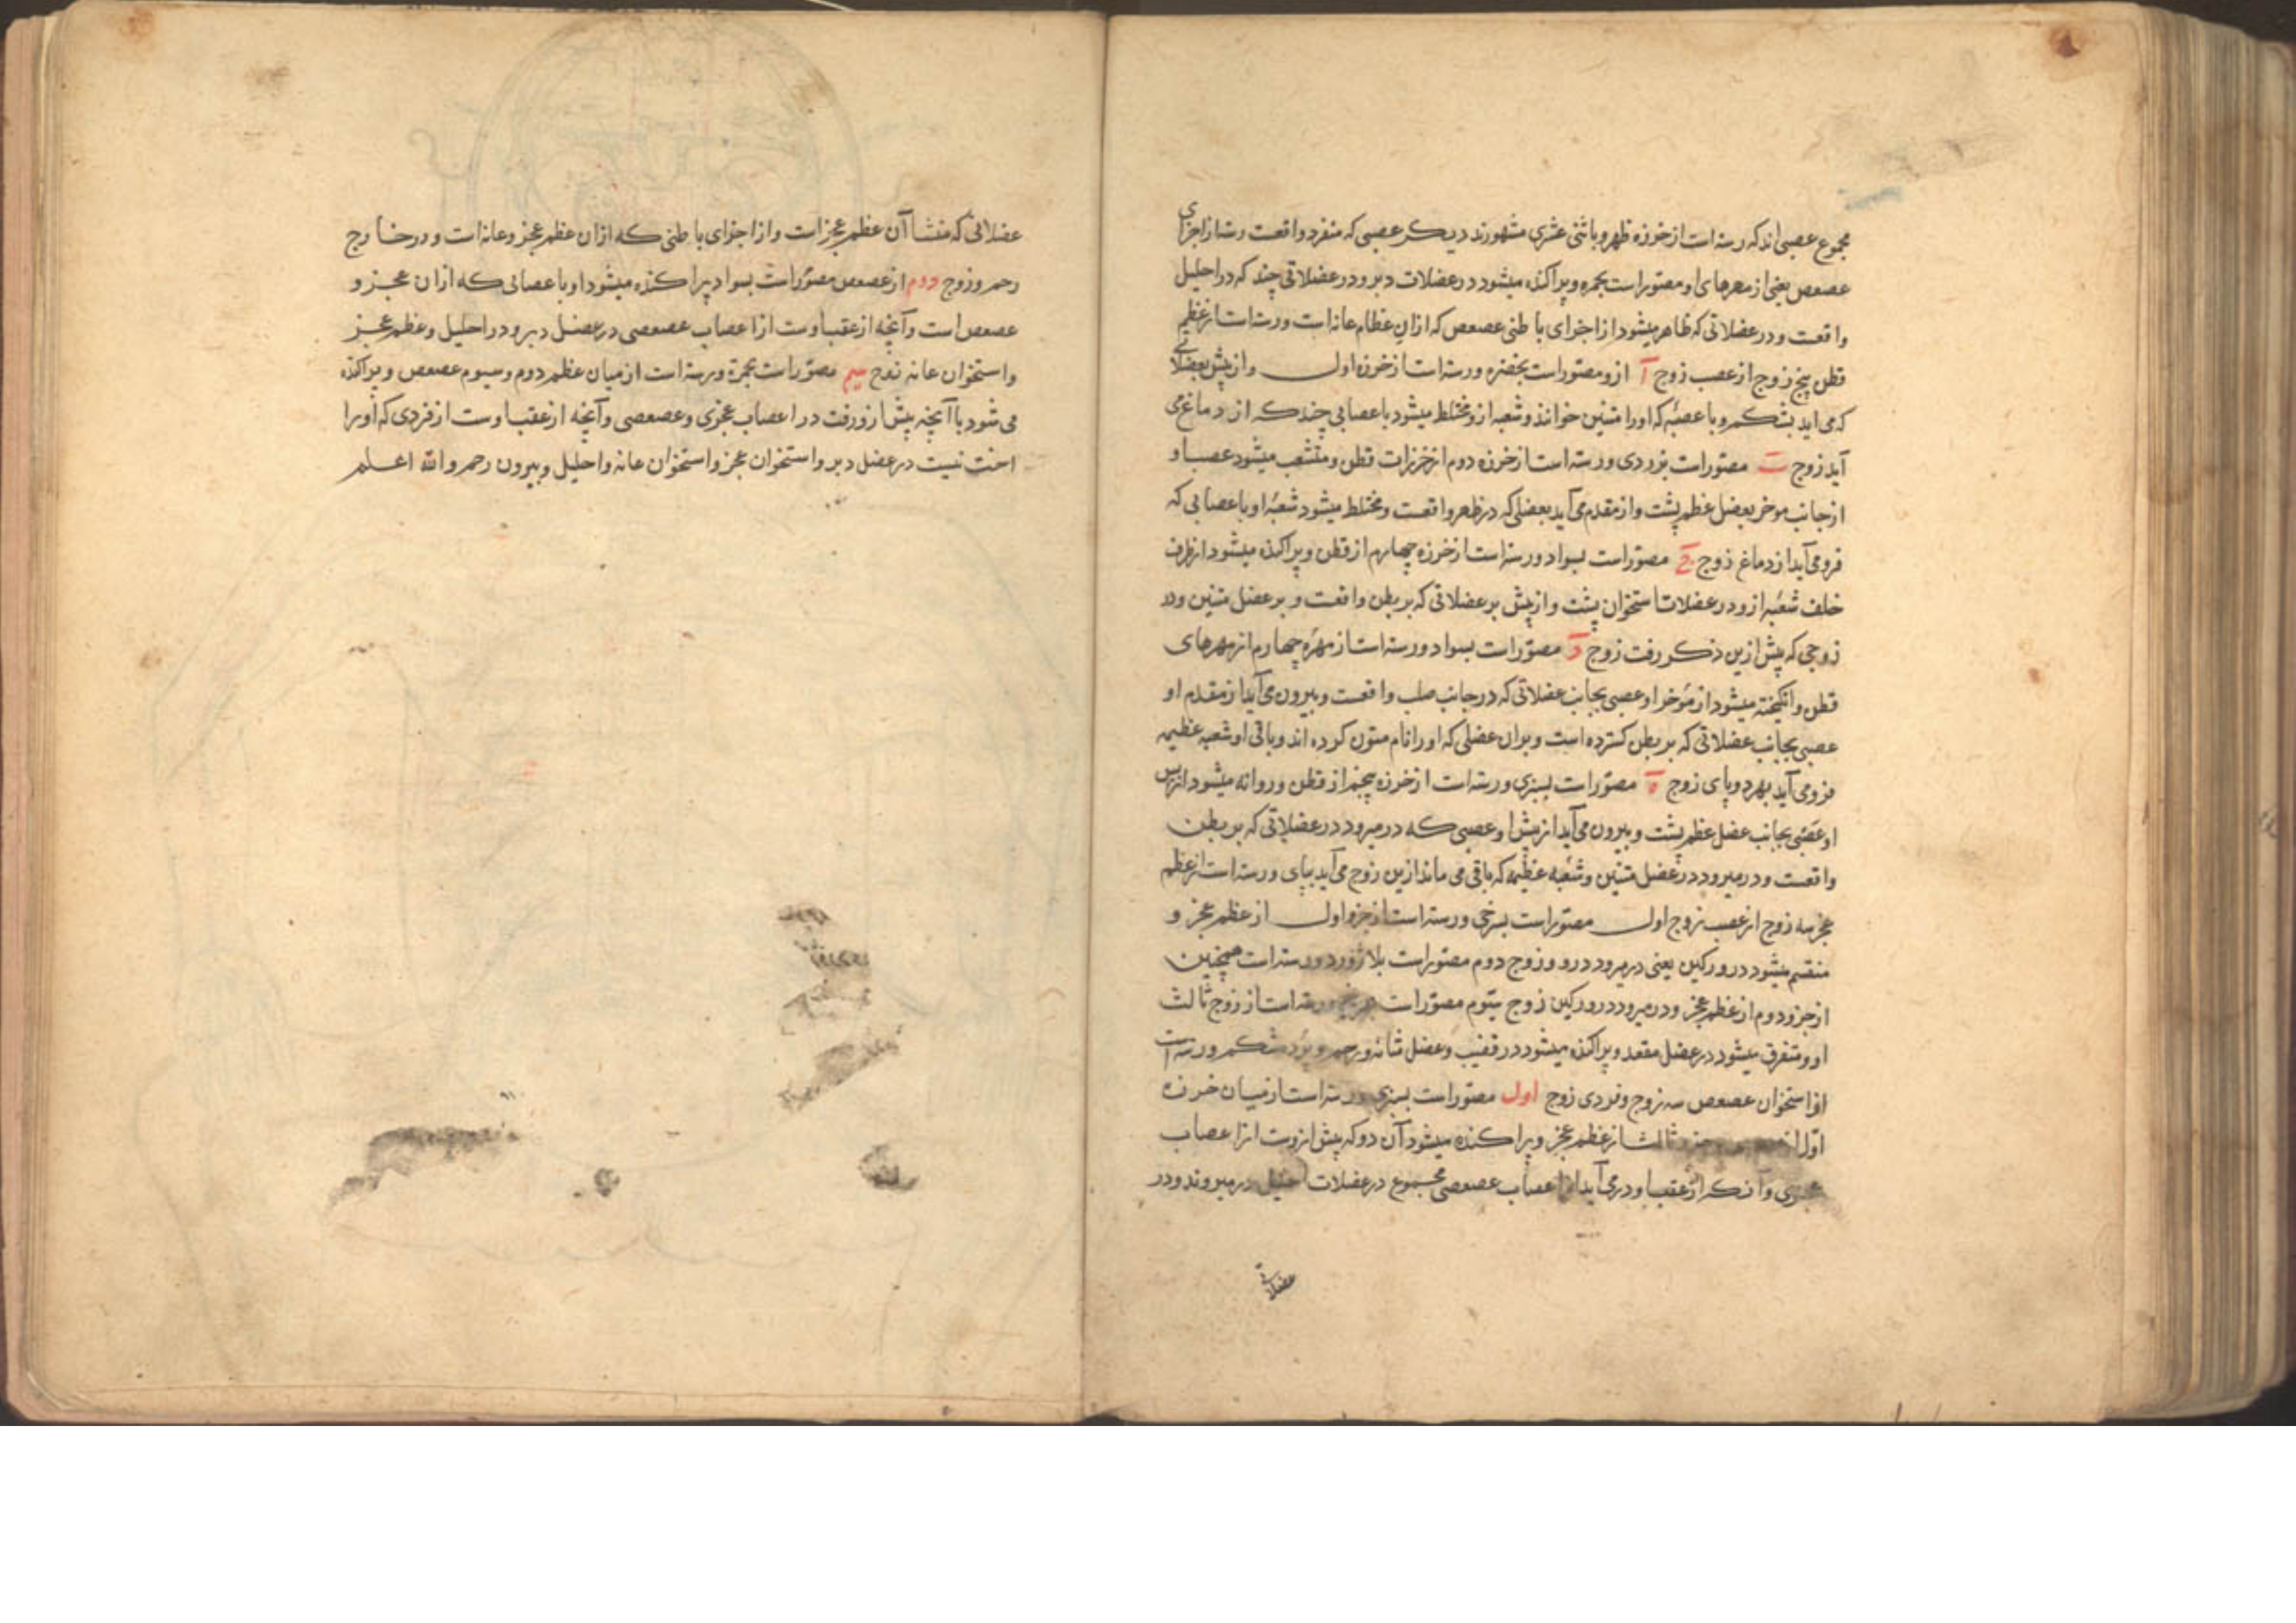 مجموع عصبی اند که رسته است از خرزه ظهر و باثنی عشری مشهورند دیکر عصبی که منفرد واقعست رسته از اجزای
عصعص یعنی از مهرهای او مصورست بحمره و پراکنده میشود در عضلات دبر و در عضلاتی چند که در احلیل
واقعست و در عضلاتی که ظاهر میشود از اجزای باطنی عصعص که ازان عظام عانه است و رسته است از عظم
قطن پنج زوج از عصب زوج آ ازو مصورست بخضره و رسته است از خرزه اول و از پیش بعضلاتی
که می اید بشکم و با عصبه که اورا متنین خوانند و شعبه ازو مختلط میشود باعصابی چند که از دماغ می
آید زوج ب مصورست بزردی و رسته است از خرزه دوم از خرزات قطن و منشعب میشود عصب او
از جانب موخر بعضل عظم پشت و از مقدم می آید بعضلی که در ظهر واقعست و مختلط میشود شعبه او باعصابی که
فرو می آید از دماغ زوج ج مصورست بسواد و رسته است از خرزه چهارم از قطن و پراکنده میشود از طرف
خلف شعبه ازو در عضلات استخوان پشت و از پیش بر عضلاتی که بر بطن واقعست و بر عضل متنین و در
زوجی که پیش ازین ذکر رفت زوج د مصورست بسواد و رسته است از مهره چهارم از مهرهای
قطن و انکیخته میشود از موخر او عصبی بجانب عضلاتی که در جانب صلب واقعست و بیرون می آید از مقدم او
عصبی بجانب عضلاتی که بر بطن کسترده است و بران عضلی که اورا نام متون کرده اند و باقی او شعبه عظیمه
فرو می آید بهر دو پای زوج ه مصورست بسبزی و رسته است از خرزه پنجم از قطن و روانه میشود از پس
او عصبی بجانب عضل عظم پشت و بیرون می آید از پیش او عصبی که در میرود در عضلاتی که بر بطن
واقعست و در میرود در عضل متنین و شعبه عظیمه که باقی می ماند ازین زوج می آید بپای و رسته است از عظم
عجز سه زوج از عصب زوج اول مصورست بسرخی و رسته است از جزو اول از عظم عجز و
منقسم میشود در ورکین یعنی در میرود درو و زوج دوم مصورست بلاژورد و رسته است همچنین
از جزو دوم از عظم عجز و در میرود در ورکین زوج سیوم مصورست رسته است از زوج ثالث
او و متفرق میشود در عضل مقعد و پراکنده میشود در قضیب و عضل مثانه و رحم و شکم و رسته است
از استخوان عصعص سه زوج و فردی زوج اول مصورست بسبزی و رسته است از میان خرزه
اول از جزو ثالث از عظم عجز و پراکنده میشود آن دو که پیش ازوست از اعصاب
عجزی و آنکه از عقب او در می آید از اعصاب عصعصی مجموع در عضلات احلیل در میروند و در
عضلاتی
عضلاتی که منشا آن عظم عجزست و از اجزای باطنی که ازان عظم عجز و عانه است و در خارج
رحم و زوج دوم از عصعص مصورست بسواد پراکنده میشود او باعصابی که ازان عجز و
عصعص است و آنچه از عقب اوست از اعصاب عصعصی در عضل دبر و در احلیل و عظم عجز
و استخوان عانه زوج سیم مصورست بحمرة و رسته است از میان عظم دوم و سیوم عصعص و پراکنده
می شود با آنچه پیش ازو رفت در اعصاب عجزی و عصعصی و آنچه از عقب اوست از فردی که اورا
اخت نیست در عضل دبر و استخوان عجز و استخوان عانه و احلیل و بیرون رحم و الله اعلم